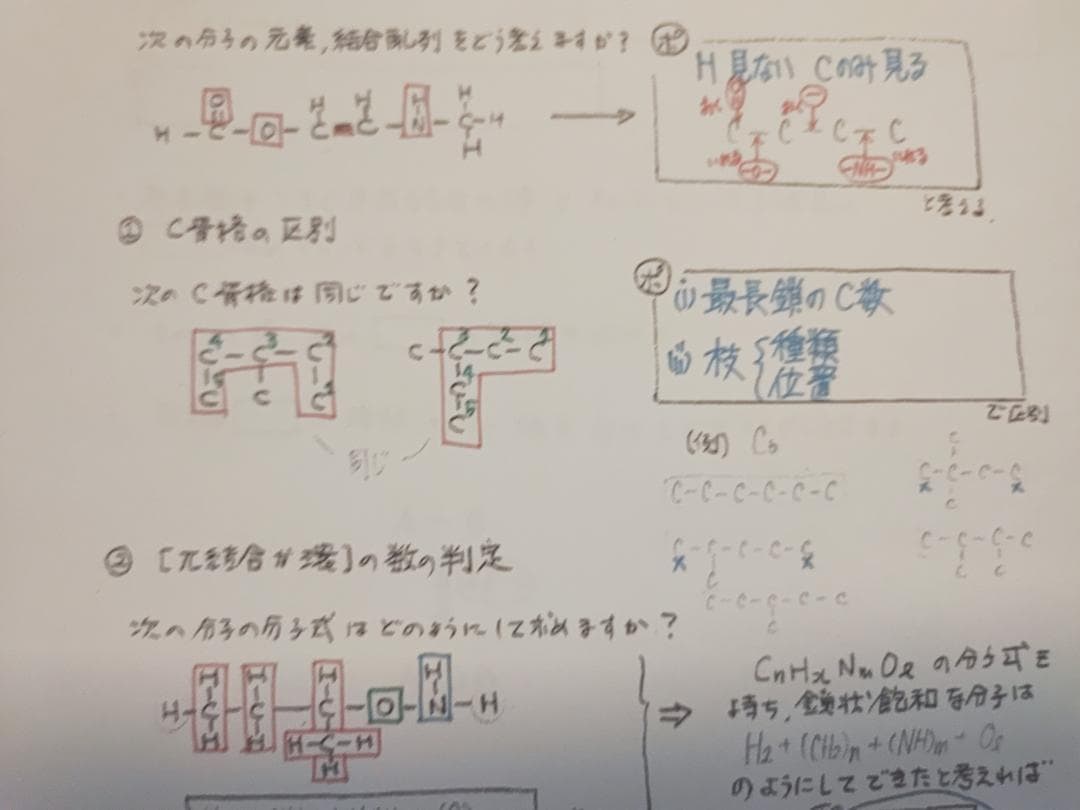 次の分子の元素,結合配列をどう考えますか?
H - C - O - C = C - N - C - H
ポ
H 見ない Cのみ見る
C C C C
-O-
-NH-
と考える.
① C骨格の区別
次のC骨格は同じですか?
C - C - C
C C C
4 3 2
5 1
C - C - C - C
C
C
3 2 1
4
5
同じ
ポ
(i) 最長鎖のC数
(ii) 枝 { 種類
位置
で区別
(例) C6
C-C-C-C-C-C
C-C-C-C-C
C
C-C-C-C-C
C
C
C-C-C-C
C
C-C-C-C
C C
② [π結合か環]の数の判定
次の分子の分子式はどのようにして求めますか?
H - C - C - C - O - N - H
H - C - H
H
⇒ CnHxNmOlの分子式を
持ち,鎖状飽和な分子は
H2+(CH2)n+(NH)m+Ol
のようにしてできたと考えれば